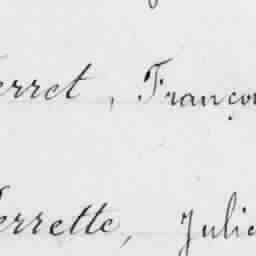 erret, Franço
errette, Julie